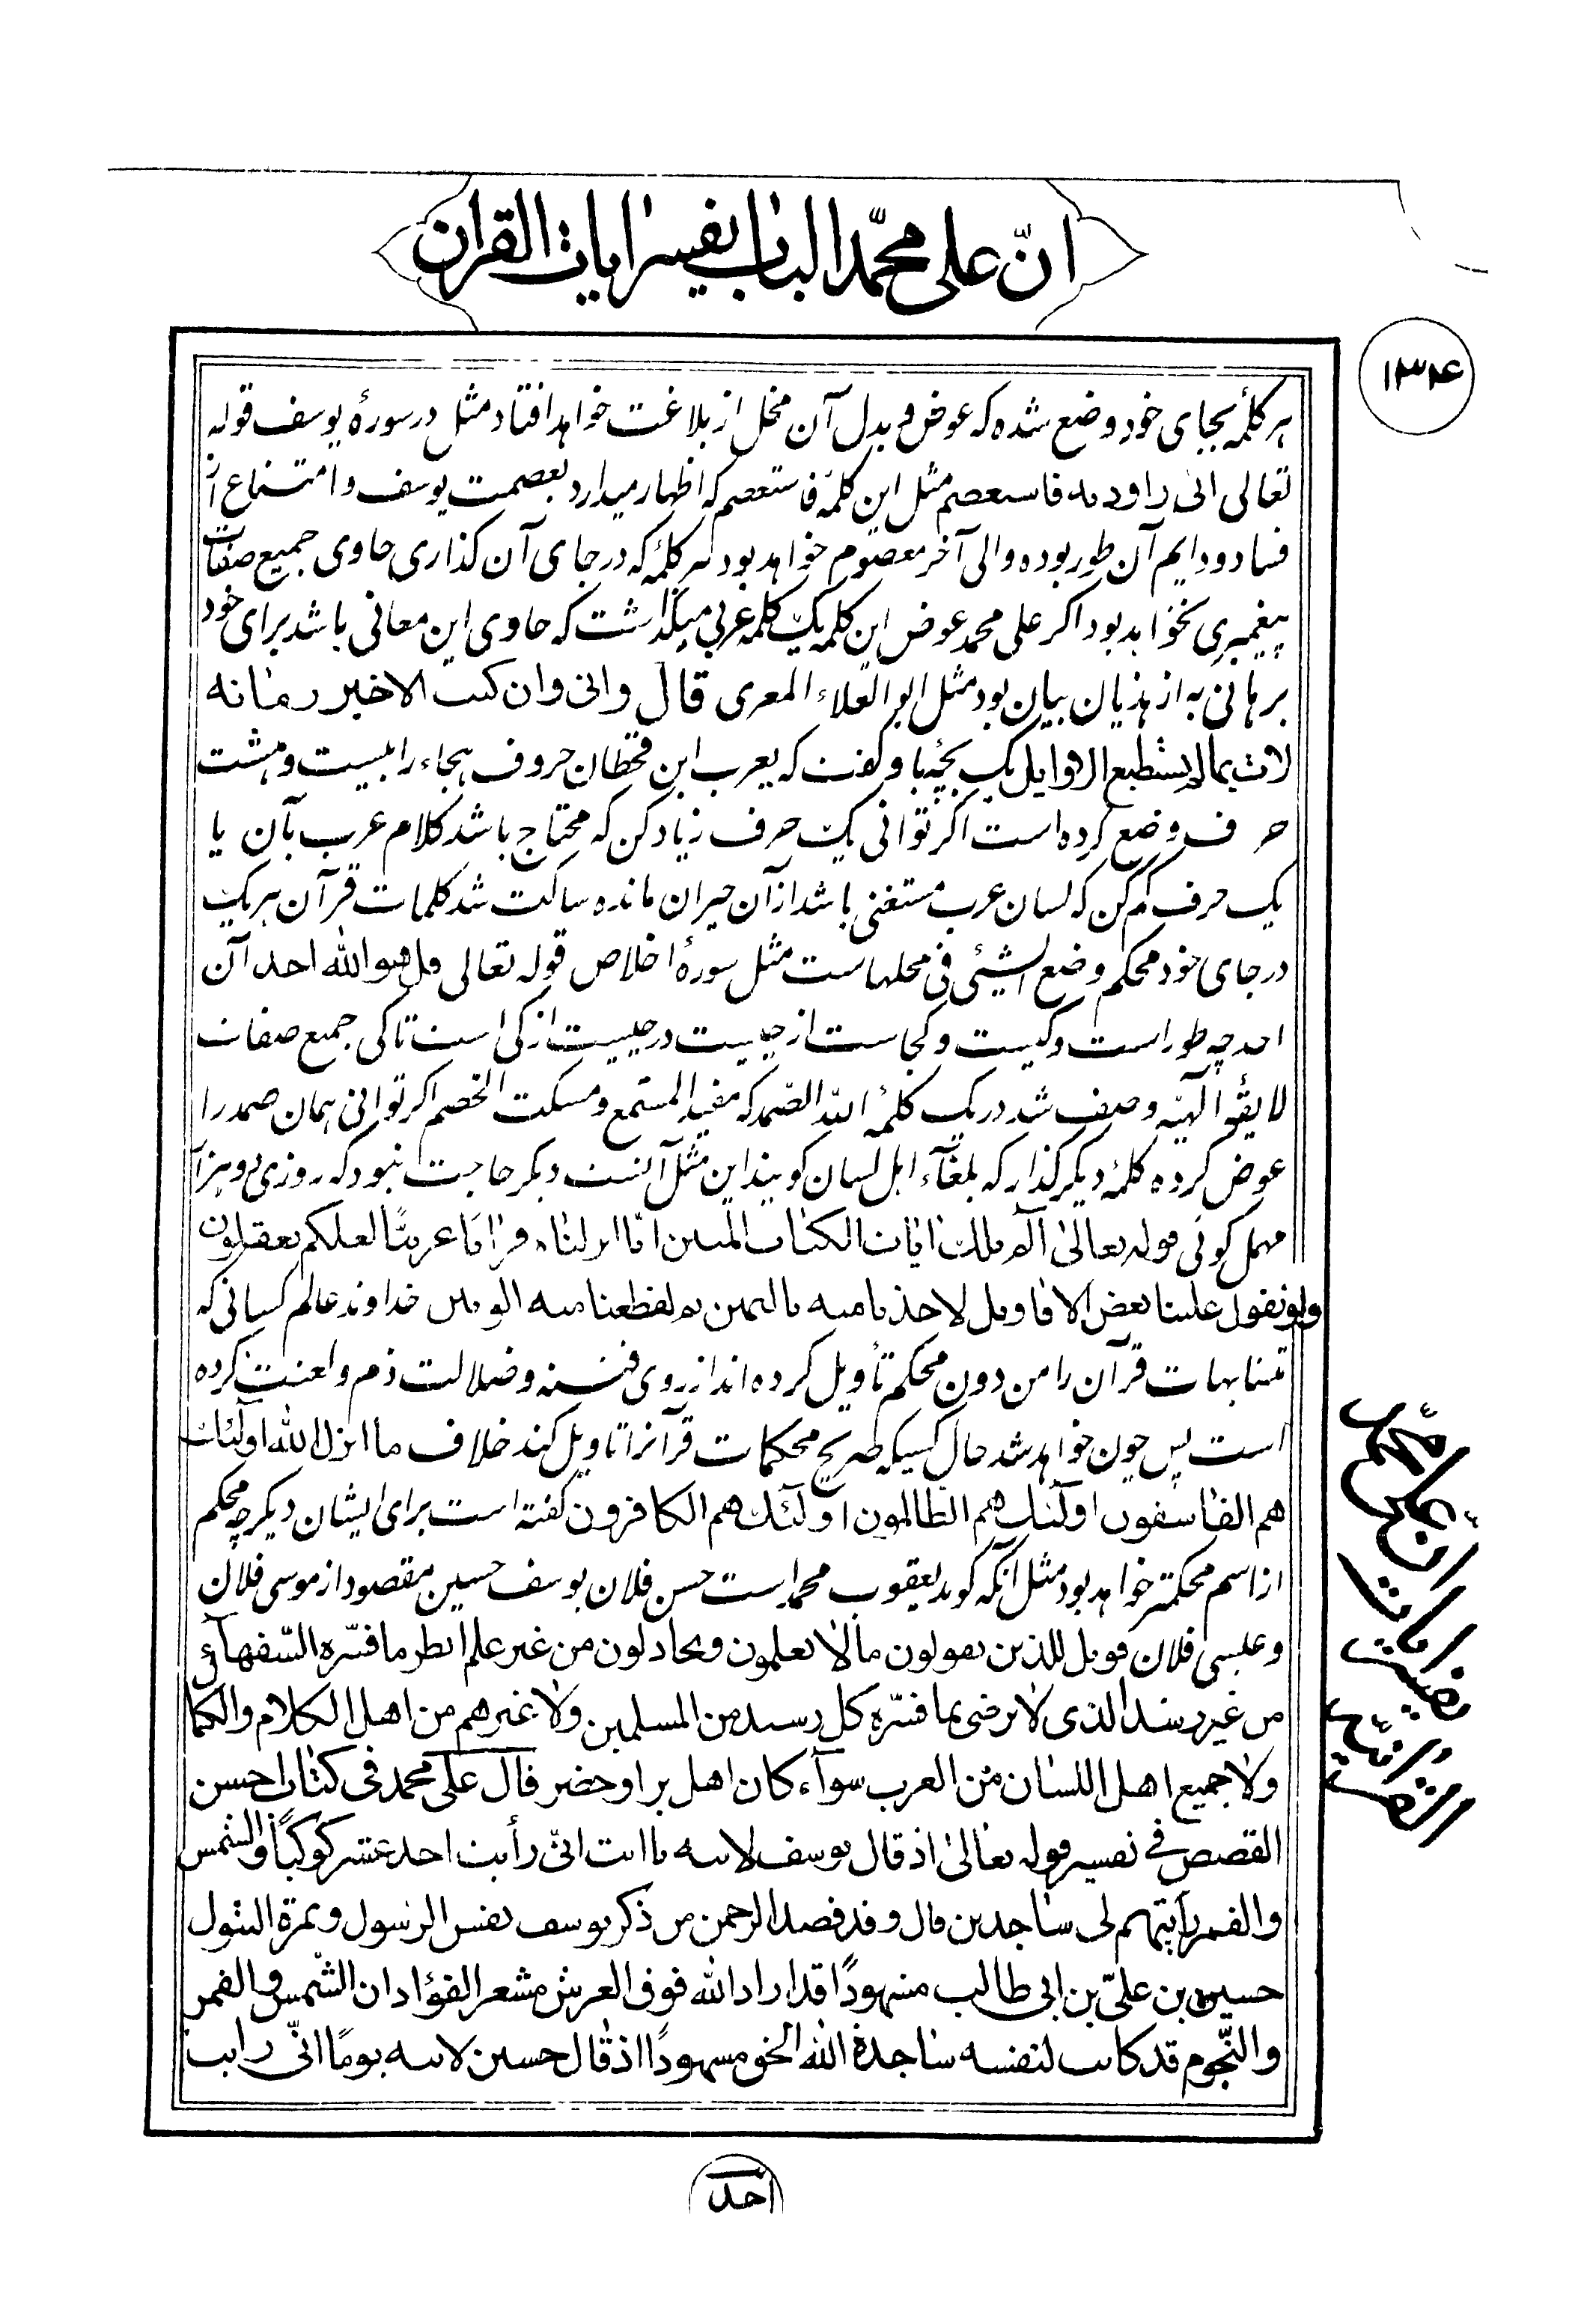 انّ علی محمّد الباب یفسر ایات القران
۱۳۴
هر کلمهٔ بجای خود وضع شده که عوض و بدل آن مخل از بلاغت خواهد افتاد مثل در سورهٔ یوسف قوله
تعالی انی راودته فاستعصم مثل این کلمهٔ فاستعصم که اظهار میدارد بعصمت یوسف و امتناع از
فساد و دایم آن طور بوده والی آخر معصوم خواهد بود هر کلمهٔ که در جای آن کذاری حاوی جمیع صفات
پیغمبری نخواهد بود اکر علی محمد عوض این کلمه یک کلمه عربی میکذاشت که حاوی این معانی باشد برای خود
برهانی به از هذیان بیان بود مثل ابو العلاء المعری قال وانی وان کنت الاخیر زمانه
لات بمالم یستطیع الاوایل یک بچهٔ باو کفت که یعرب ابن قحطان حروف هجاء را بیست و هشت
حرف وضع کرده است اکر توانی یک حرف زیاد کن که محتاج باشد کلام عرب بآن یا
یک حرف کم کن که لسان عرب مستغنی باشد از آن حیران مانده ساکت شد کلمات قرآن هر یک
در جای خود محکم وضع الشیئ فی محلها است مثل سورهٔ اخلاص قوله تعالی قل هو الله احد آن
احد چه طور است و کیست و کجاست از چیست در چیست از کی است تا کی جمیع صفات
لایقهٔ آلهیّه وصف شد در یک کلمهٔ الله الصّمد که مفید المستمع و مسکت الخصم اکر توانی همان صمد را
عوض کرده کلمهٔ دیکر کذار که بلغآء اهل لسان کویند این مثل آنست دیکر حاجت نبود که روزی دو هزار
مهمل کوئی قوله تعالی آلر تلک ایات الکتاب المبین انّا انزلناه قرانا عربیّا لعلکم تعقلون
ولو تقول علینا بعض الاقاویل لاخذنا منه بالیمین ثم لقطعنا منه الوتین خداوند عالم کسانی که
متشابهات قرآن را من دون محکم تأویل کرده اند از روی فتنه و ضلالت ذم و لعنت کرده
است پس چون خواهد شد حال کسیکه صریح محکمات قرآنرا تاویل کند خلاف ما انزل الله اولئک
هم الفاسقون اولئک هم الظالمون اولئک هم الکافرون کفته است برای ایشان دیکر چه محکم
از اسم محکمتر خواهد بود مثل آنکه کوید یعقوب محمد است حسن فلان یوسف حسین مقصود از موسی فلان
و عیسی فلان فویل للذین یقولون مالا یعلمون ویجادلون من غیر علم انظر ما فسّره السّفهآئ
من غیر رشد الذی لا یرضی بما فسّره کل رشید من المسلمین ولا غیرهم من اهل الکلام والکمال
ولا جمیع اهل اللسان من العرب سوآء کان اهل بر او حضر قال علی محمد فی کتاب احسن
القصص فی تفسیر قوله تعالی اذ قال یوسف لابیه یا ابت انّی رأیت احد عشر کوکبًا والشمس
والقمر رأیتهم لی ساجدین قال وقد قصد الرحمن من ذکر یوسف نفس الرسول وثمرة البتول
حسین بن علیّ بن ابی طالب مشهودًا قد اراد الله فوق العرش مشعر الفؤاد ان الشمس والقمر
والنّجوم قد کانت لنفسه ساجدة الله الحق مشهودًا اذ قال حسین لابیه یومًا انّی رایت
انّ علی محمّد
یفسر ایات
القران
احد